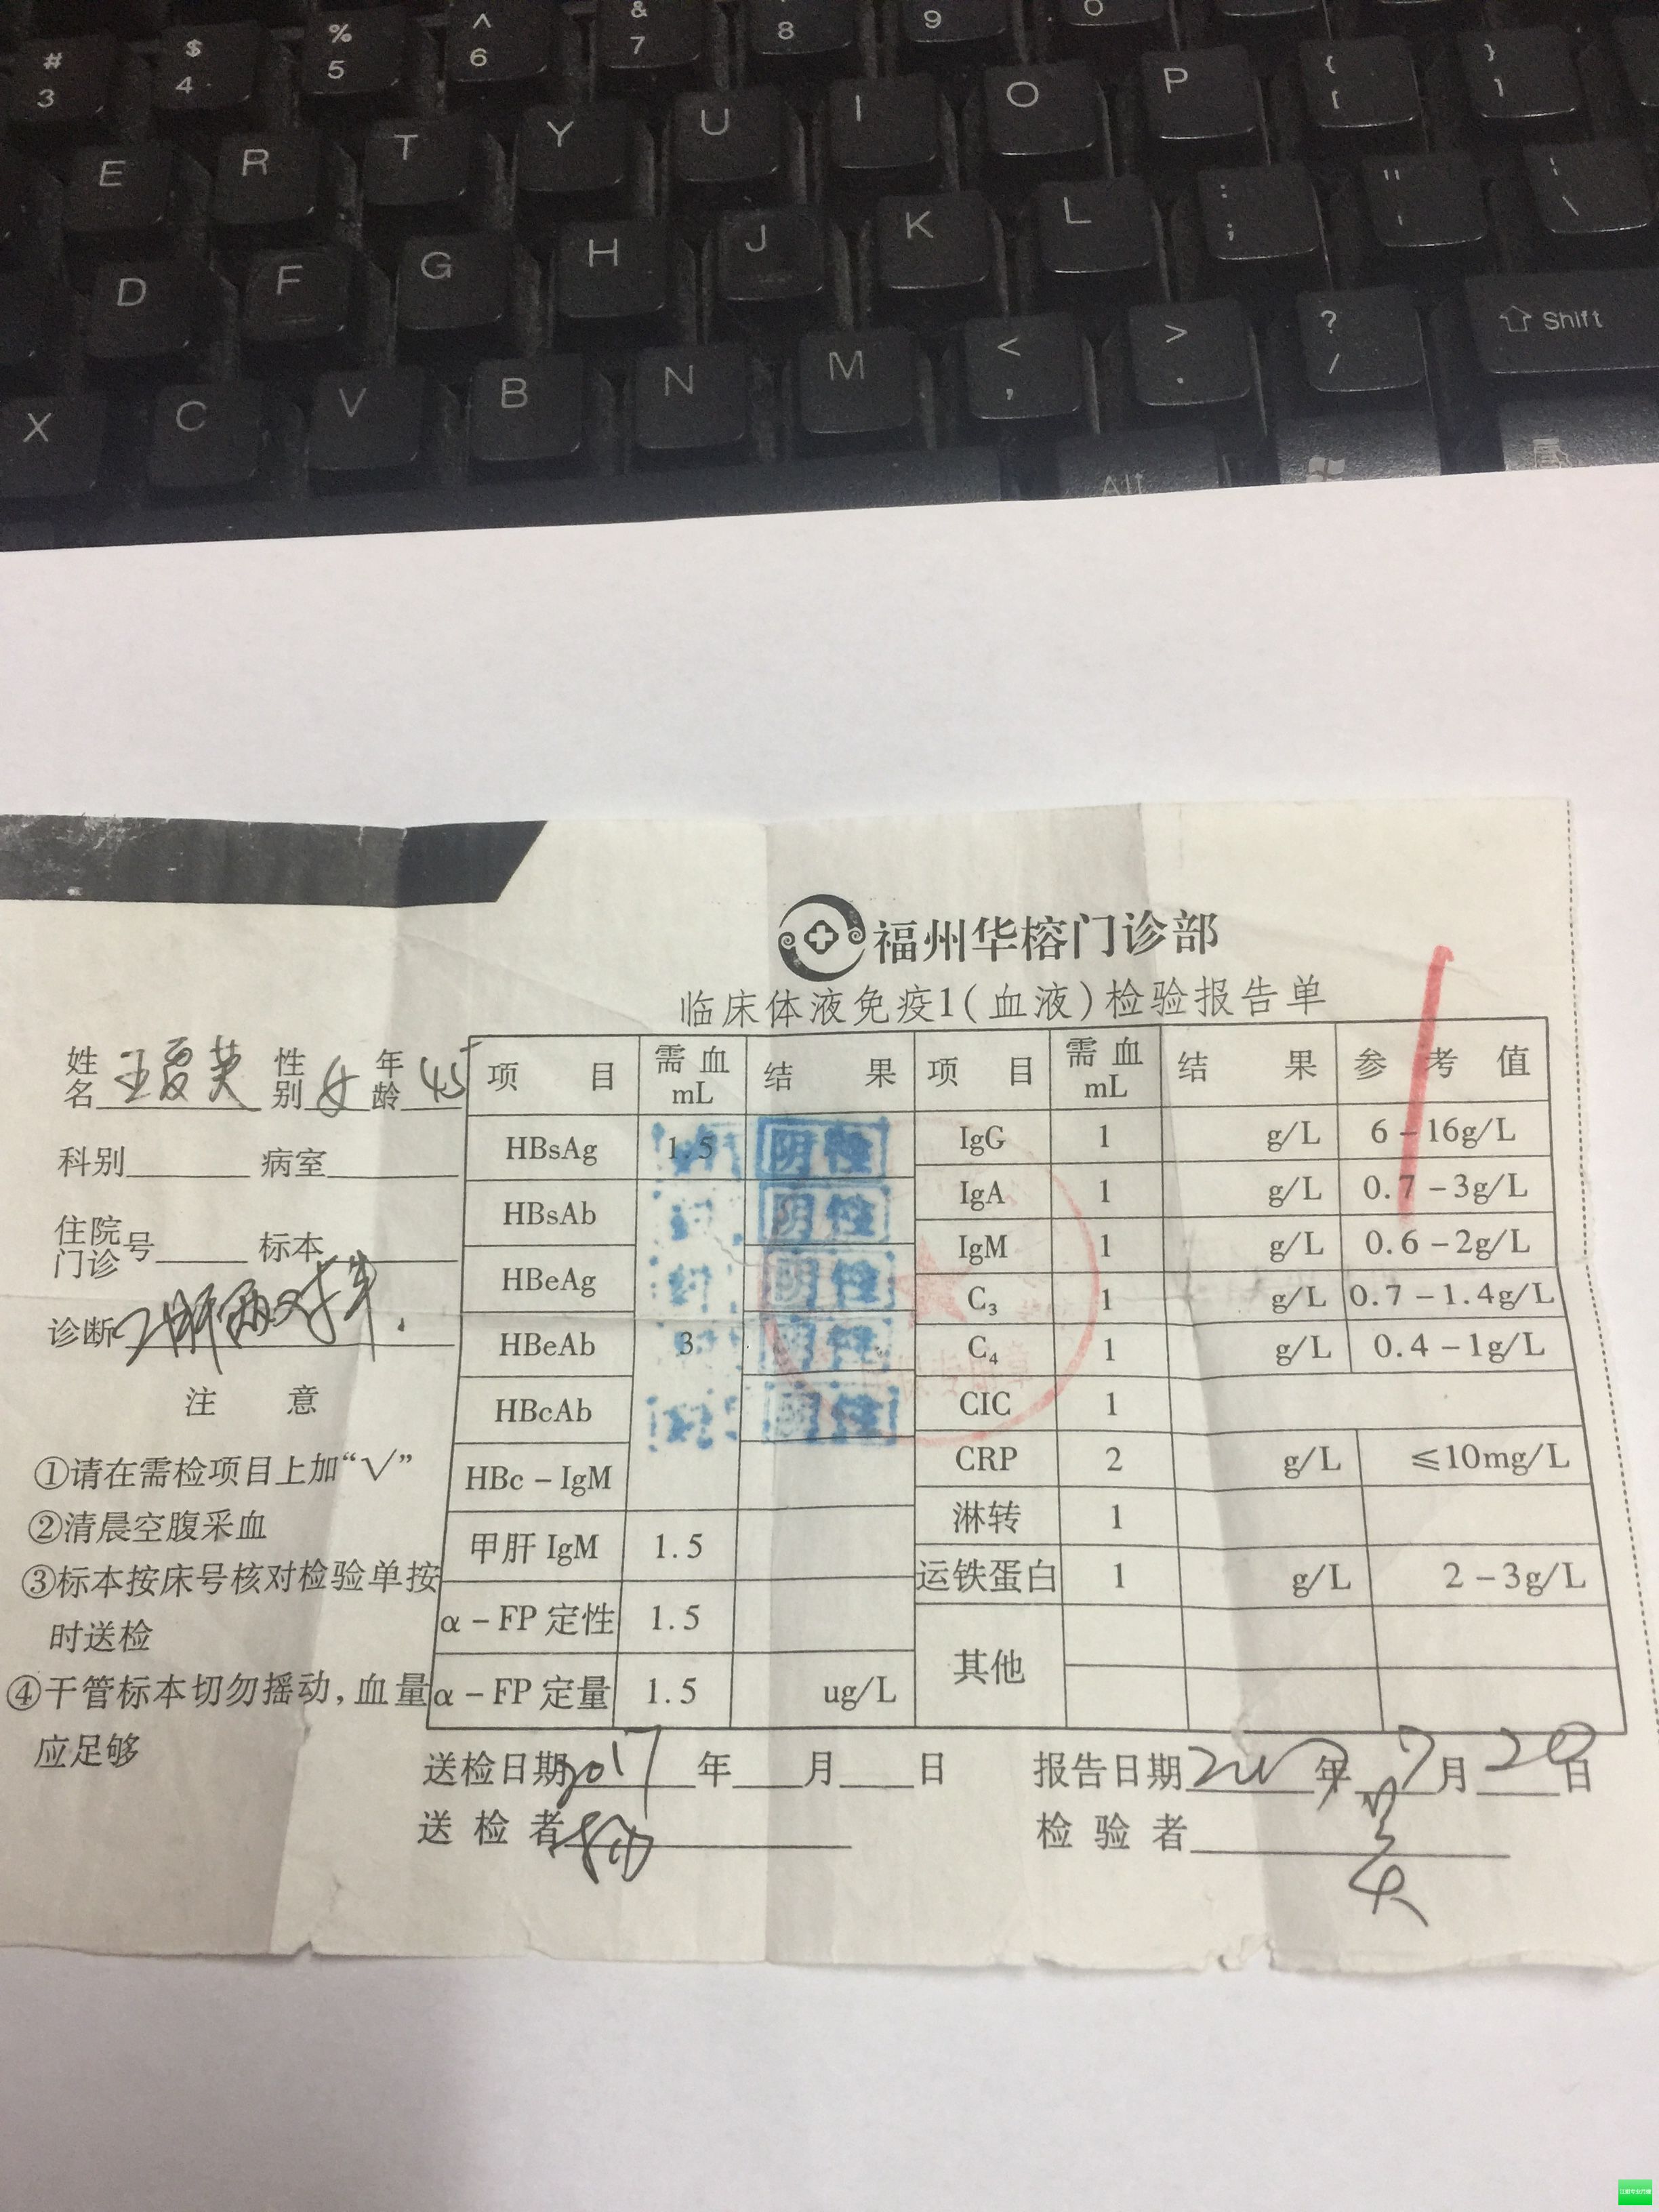 # $ % ^ & 9 0
3 4 5 6 7 8
E R T Y U I O P { [ } ]
D F G H J K L : ; " ' \
X C V B N M < , > . ? / Shift
Alt
福州华榕门诊部
临床体液免疫1(血液)检验报告单
姓名 王夏英 性别 女 年龄 45
科别 病室
住院门诊号 标本
诊断 乙肝两对半.
注 意
①请在需检项目上加“√”
②清晨空腹采血
③标本按床号核对检验单按
时送检
④干管标本切勿摇动,血量
应足够
项 目 需血 mL 结 果 项 目 需血 mL 结 果 参 考 值
HBsAg 1.5 阴性 IgG 1 g/L 6-16g/L
HBsAb 阴性 IgA 1 g/L 0.7-3g/L
HBeAg 阴性 IgM 1 g/L 0.6-2g/L
C₃ 1 g/L 0.7-1.4g/L
HBeAb 3 阴性 C₄ 1 g/L 0.4-1g/L
HBcAb 阴性 CIC 1
HBc-IgM CRP 2 g/L ≤10mg/L
甲肝 IgM 1.5 淋转 1
α-FP 定性 1.5 运铁蛋白 1 g/L 2-3g/L
α-FP 定量 1.5 ug/L 其他
送检日期 2017 年 月 日 报告日期 2017 年 7 月 20 日
送 检 者 检 验 者